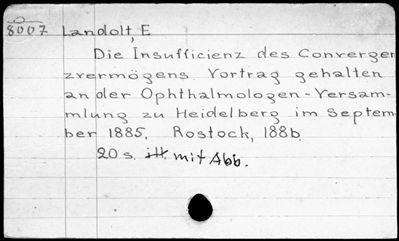 8007 Landolt, E
Die Insufficienz des Convergen
zvermögens. Vortrag gehalten
an der Ophthalmologen-Versam-
mlung zu Heidelberg im Septem
ber 1885. Rostock, 1886.
20 s. ill. mit Abb.